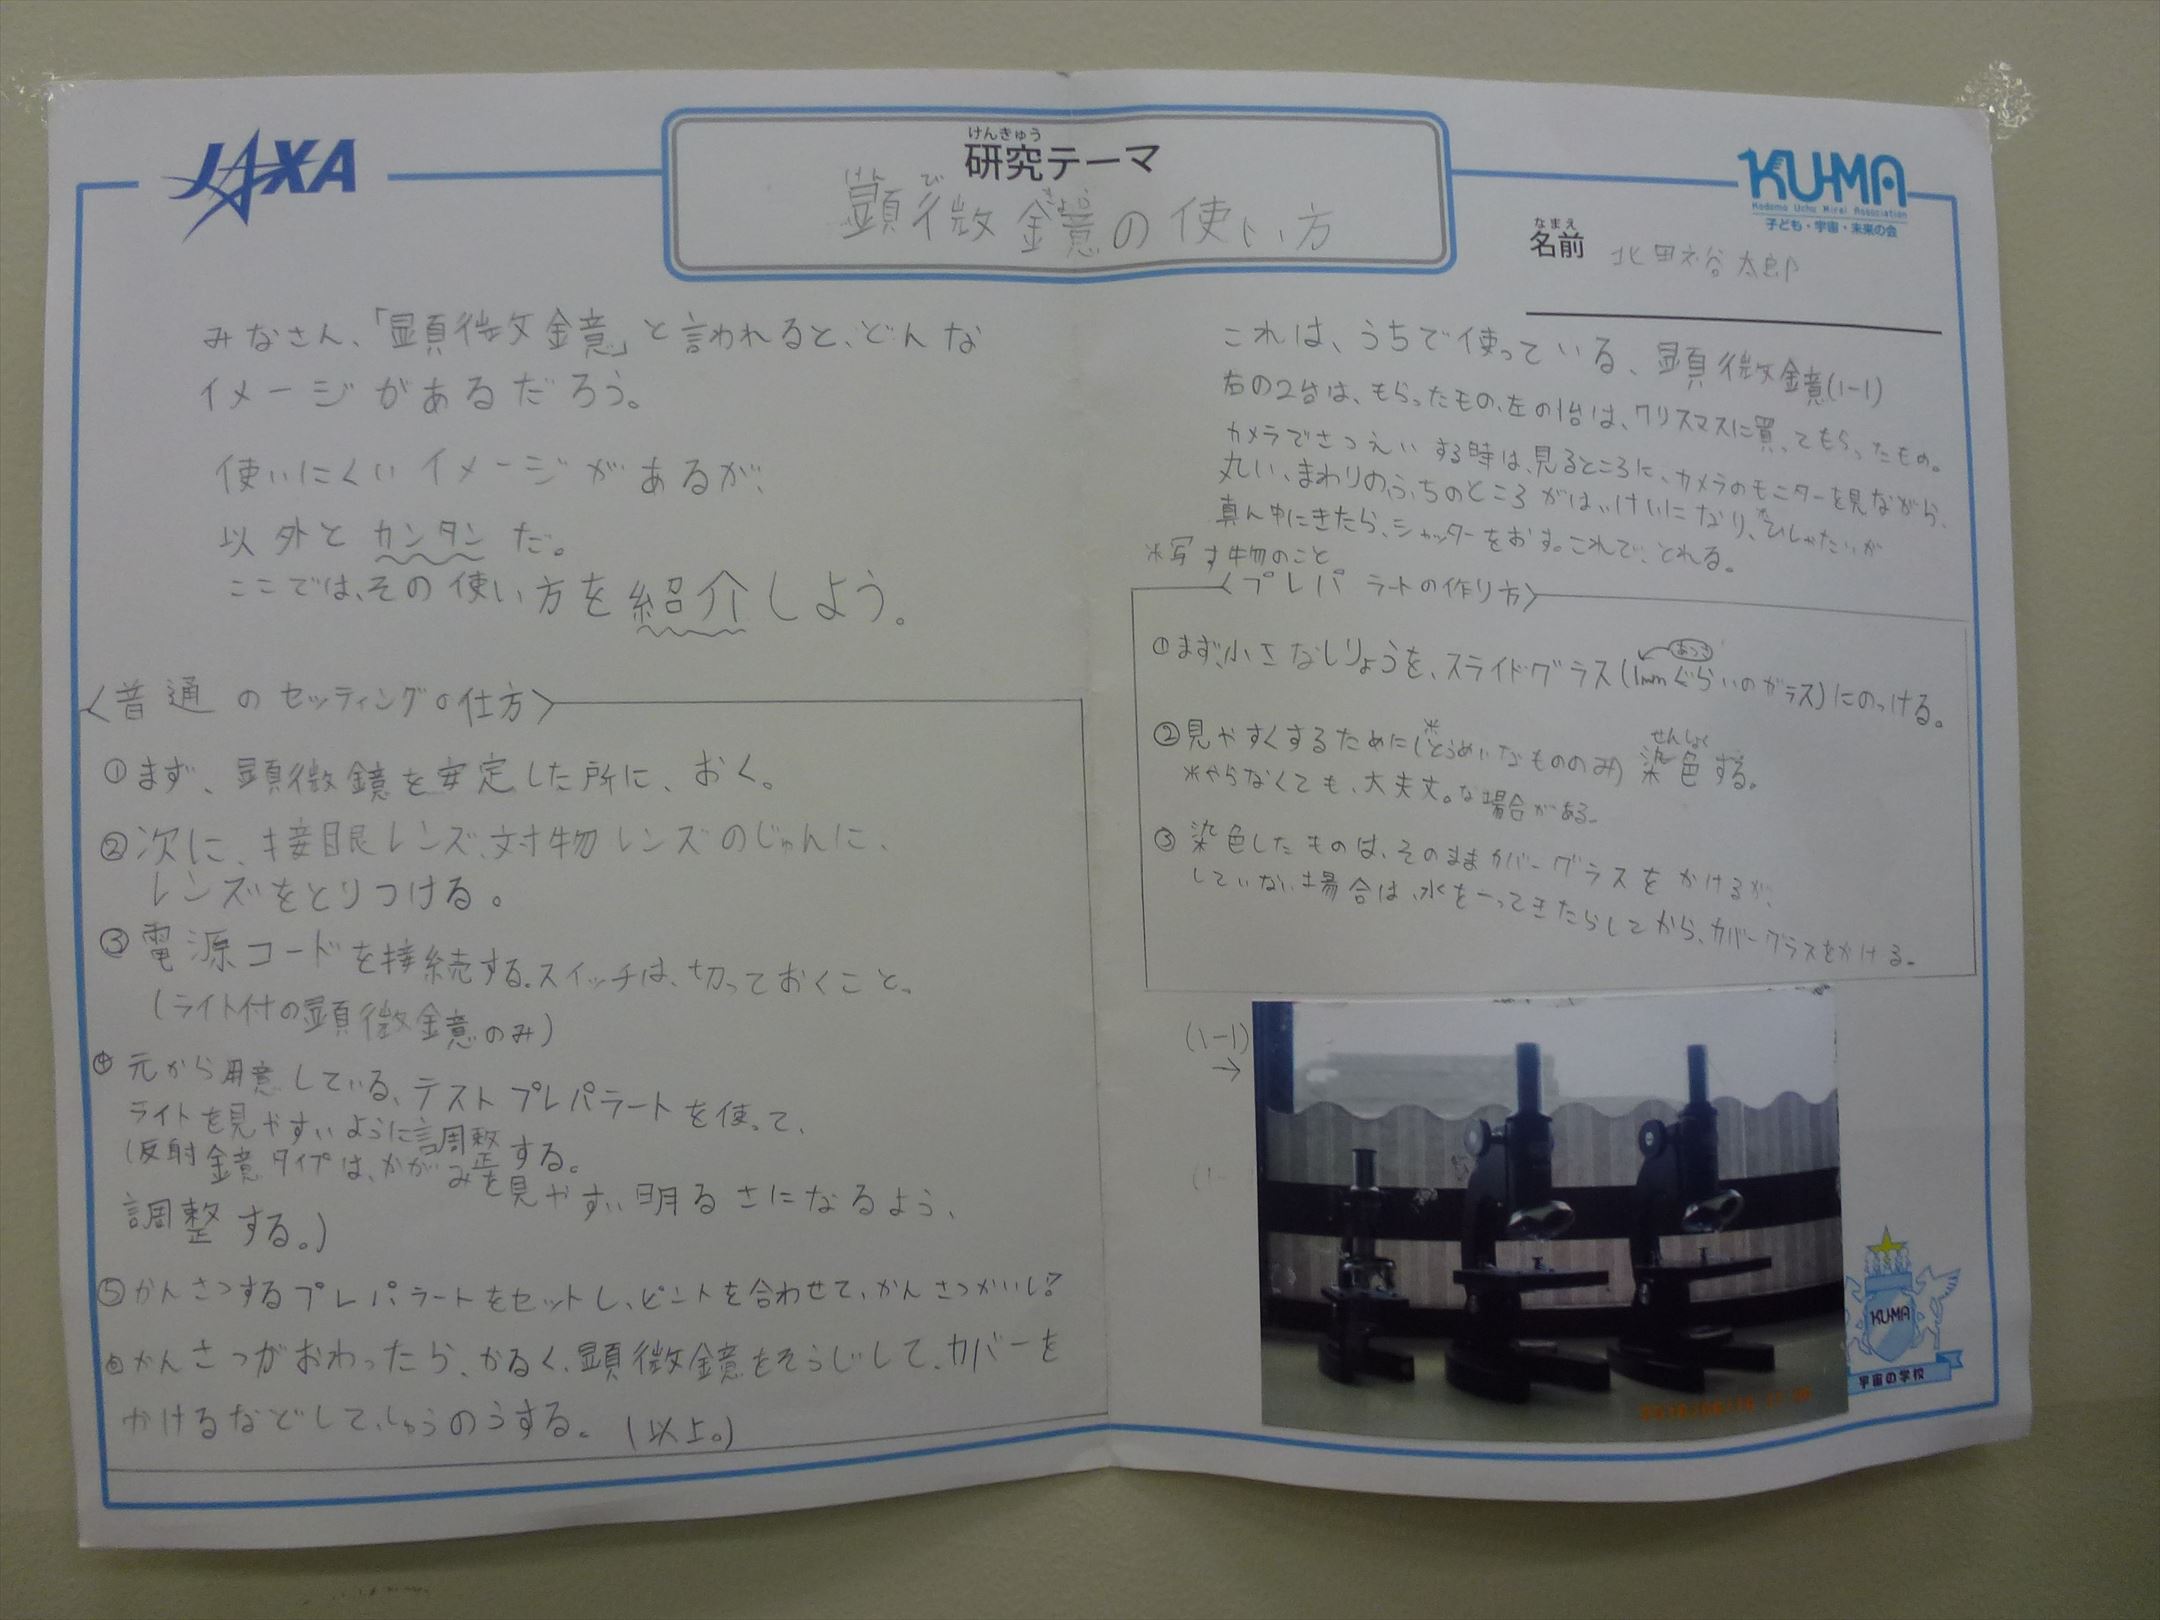 JAXA
けんきゅう
研究テーマ
けんびきょう
顕微鏡の使い方
KU-MA
Kodomo Uchu Mirai Association
子ども・宇宙・未来の会
なまえ
名前 北田裕太郎
みなさん、「顕微鏡」と言われると、どんな
イメージがあるだろう。
使いにくいイメージがあるが、
以外とカンタンだ。
ここでは、その使い方を紹介しよう。
〈普通のセッティングの仕方〉
①まず、顕微鏡を安定した所に、おく。
②次に、接眼レンズ、対物レンズのじゅんに、
レンズをとりつける。
③電源コードを接続する。スイッチは、切っておくこと。
(ライト付の顕微鏡のみ)
④元から用意している、テストプレパラートを使って、
ライトを見やすいように調整する。
(反射鏡タイプは、かがみを見やすい明るさになるよう、
調整する。)
⑤かんさつするプレパラートをセットし、ピントを合わせて、かんさつかいし?
⑥かんさつがおわったら、かるく、顕微鏡をそうじして、カバーを
かけるなどして、しゅうのうする。(以上。)
これは、うちで使っている、顕微鏡(1-1)
右の2台は、もらったもの、左の1台は、クリスマスに買ってもらったもの。
カメラでさつえいする時は、見るところに、カメラのモニターを見ながら、
丸い、まわりのふちのところがはいけいになり、※ひしゃたいが
真ん中にきたら、シャッターをおす。これで、とれる。
※写す物のこと。
〈プレパラートの作り方〉
①まず、小さなしりょうを、スライドグラス(1mmぐらいのガラス)にのっける。
あつさ
②見やすくするために(※とうめいなもののみ)染色する。
せんしょく
※やらなくても、大丈丈。な場合がある。
③染色したものは、そのままカバーグラスをかけるが、
していない場合は、水を一ってきたらしてから、カバーグラスをかける。
(1-1)
→
(1-
KU-MA
宇宙の学校